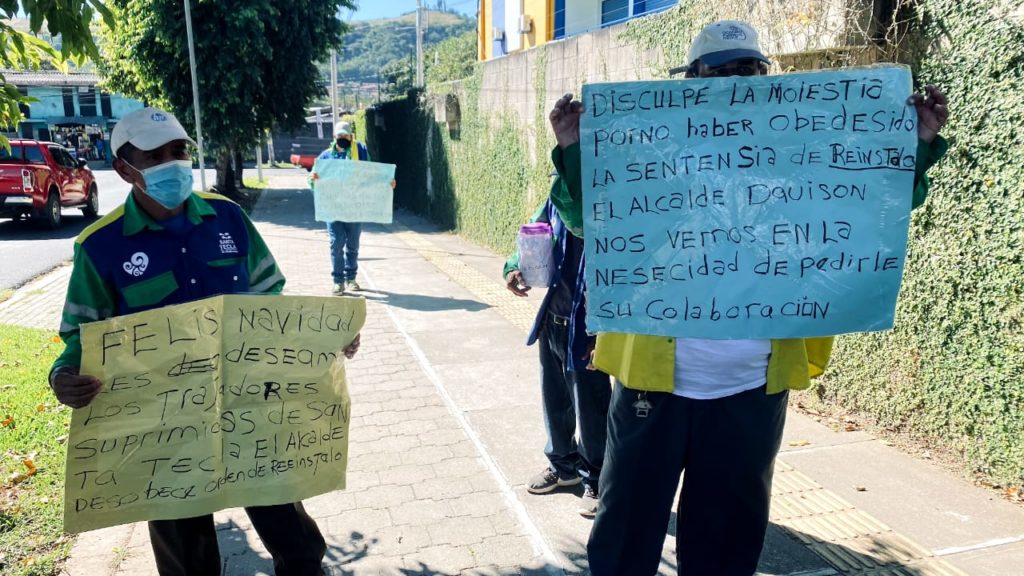 FELIS NAVIDAD
LES DESEAM
LOS TRAJADORES
SUPRIMIDAS DE SAN
TA TECLA EL ALCALDE
DESOBECE ORDEN DE REEINSTALO
DISCULPE LA MOLESTIA
POR NO HABER OBEDESIDO
LA SENTENSIA DE REINSTALO
EL ALCALDE DQUISON
NOS VEMOS EN LA
NESECIDAD DE PEDIRLE
SU COLABORACIÓN
SANTA TECLA